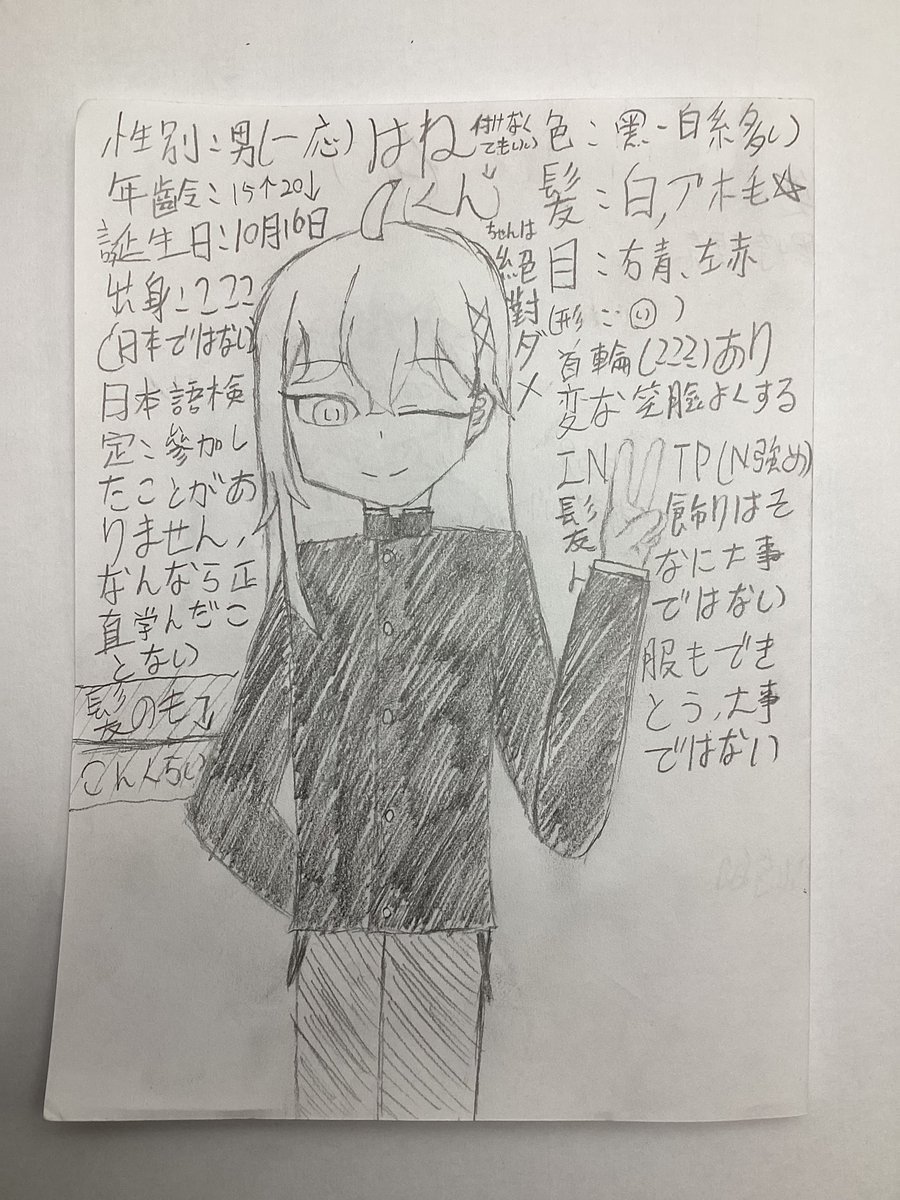 性別:男(一応)
年齢:15↑20↓
誕生日:10月16日
出身:???
(日本ではない)
日本語検
定:參加し
たことがあ
りません,
なんなら正
直学んだこ
とない
髪のモ
こんんちい
はね
くん
付けなく
てもいい
ちゃんは
絕對ダメ
色:黑-白系多い
髪:白,アホ毛☆
目:右青、左赤
(形:)
首輪(???)あり
変な笑臉よくする
INTP(N強め)
髪ト飾りはそ
なに大事
ではない
服もでき
とう,大事
ではない